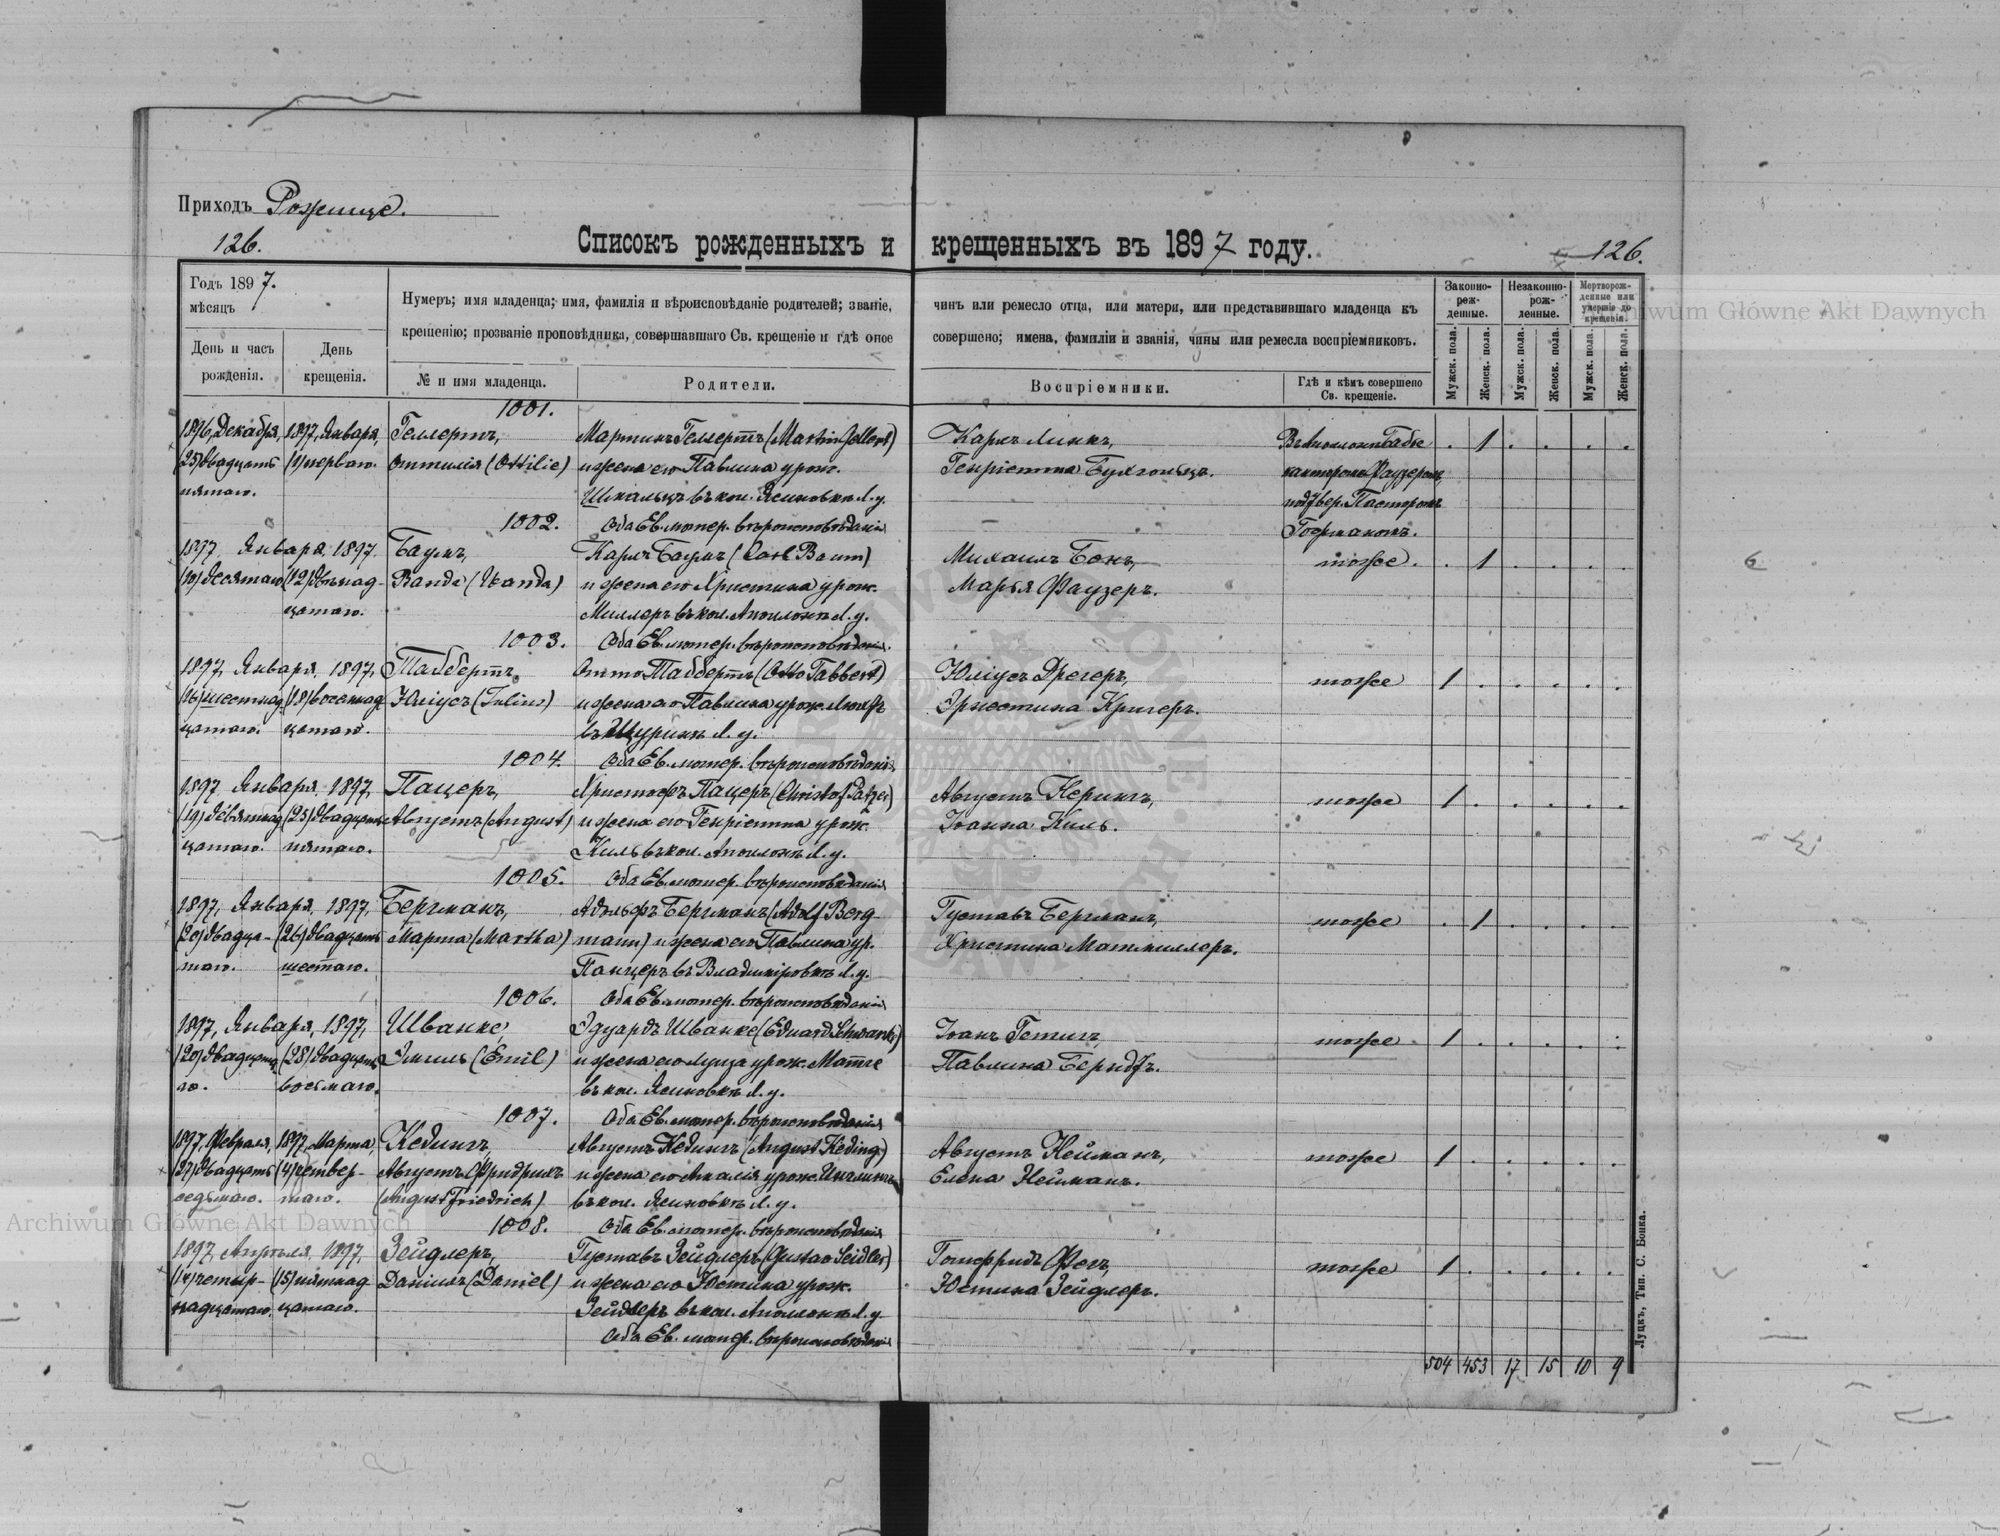 Приходъ Рожище.
126.
Списокъ рожденныхъ и крещенныхъ въ 1897 году.
126.
Годъ 1897.
мѣсяцъ
День и часъ рожденія.
День крещенія.
Нумеръ; имя младенца; имя, фамилія и вѣроисповѣданіе родителей; званіе, чинъ или ремесло отца, или матери, или представившаго младенца къ
крещенію; прозваніе проповѣдника, совершавшаго Св. крещеніе и гдѣ оное совершено; имена, фамиліи и званія, чины или ремесла воспріемниковъ.
№ и имя младенца.
Родители.
Воспріемники.
Гдѣ и кѣмъ совершено Св. крещеніе.
Законно-рож-денные.
Незаконно-рож-денные.
Мертворож-денные или умершіе до крещенія.
Мужск. пола.
Женск. пола.
Мужск. пола.
Женск. пола.
Мужск. пола.
Женск. пола.
1001.
1896, Декабря, 1897, Января, Геллертъ, Мартинъ Геллертъ (Martin Gellert) Карлъ Линкъ, 1
(25) двадцать (1) перваго. Оттилія (Ottilie) и жена его Павлина урож. Генріетта Бухгольцъ. канторомъ Фаузеромъ,
пятаго. въ кол. Ясиновкѣ Л. у. подтвер. Пасторомъ
1002. Оба Ев. лютер. вѣроисповѣданія
1897, Января, 1897, Баумъ, Карлъ Баумъ (Carl Baum) Михаилъ Бокъ, тоже. 1
(10) десятаго (12) двѣнад- Ванда (Wanda) и жена его Христина урож. Марья Фаузеръ.
цатаго. Миллеръ въ кол. Аполонкѣ Л. у.
1003. Оба Ев. лютер. вѣроисповѣданія.
1897, Января, 1897, Таббертъ, Отто Таббертъ (Otto Tabbert) Юліусъ Дрегеръ, тоже 1
(16) шестнад- (18) восемнад- Юліусъ (Julius) и жена его Павлина урож. Эрнестина Кригеръ.
цатаго. цатаго. въ Щуринѣ Л. у.
1004. Оба Ев. лютер. вѣроисповѣданія
1897, Января, 1897, Пацеръ, Христофъ Пацеръ (Christof Patzer) Августъ Керингъ, тоже 1
(19) девятнад- (25) двадцать Августъ (August) и жена его Генріетта урож. Іоанна Киль.
цатаго. пятаго. Киль въ кол. Аполонкѣ Л. у.
1005. Оба Ев. лютер. вѣроисповѣданія
1897, Января, 1897, Бергманъ, Адольфъ Бергманъ (Adolf Berg- Густавъ Бергманъ, тоже 1
(20) двадца- (26) двадцать Марта (Martha) mann) и жена его Павлина ур. Христина Матмиллеръ.
таго. шестаго. Панцеръ въ Владиміровкѣ Л. у.
1006. Оба Ев. лютер. вѣроисповѣданія
1897, Января, 1897, Шванке, Эдуардъ Шванке (Eduard Schwanke) тоже. 1
(20) двадцата- (28) двадцать Эмиль (Emil) и жена его Луиза урож. Павлина Берндтъ.
го. восьмаго. въ кол. Ясиновкѣ Л. у.
1007. Оба Ев. лютер. вѣроисповѣданія
1897, Февраля, 1897, Марта, Кедингъ, Августъ Кедингъ (August Keding) Августъ Нейманъ, тоже 1
(27) двадцать (4) четвер- Августъ Фридрихъ и жена его Амалія урож. Елена Нейманъ.
седьмаго. таго. (August Friedrich) въ кол. Ясиновкѣ Л. у.
1008. Оба Ев. лютер. вѣроисповѣданія
1897, Апрѣля, 1897, Зейдлеръ, Густавъ Зейдлеръ (Gustav Seidler) Готфридъ тоже 1
(14) четыр- (15) пятнад- Даніилъ (Daniel) и жена его Юстина урож. Юстина Зейдлеръ.
надцатаго. цатаго. Зейдлеръ въ кол. Аполонкѣ Л. у.
Оба Ев. лютер. вѣроисповѣданія
504 453 17 15 10 9
Луцкъ, Тип. С. Бонка.
Archiwum Główne Akt Dawnych
Archiwum Główne Akt Dawnych